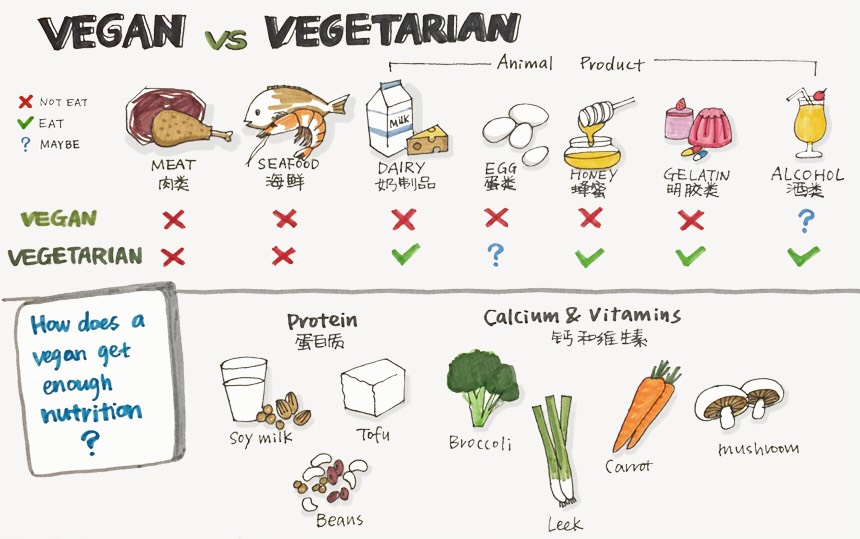 VEGAN VS VEGETARIAN
Animal Product
NOT EAT
EAT
MAYBE
MiLK
MEAT
肉类
SEAFOOD
海鲜
DAIRY
奶制品
EGG
蛋类
HONEY
蜂蜜
GELATIN
明胶类
ALCOHOL
酒类
VEGAN
?
VEGETARIAN
?
How does a
vegan get
enough
nutrition
?
Protein
蛋白质
Soy milk
Tofu
Beans
Calcium & Vitamins
钙和维生素
Broccoli
Leek
Carrot
mushroom